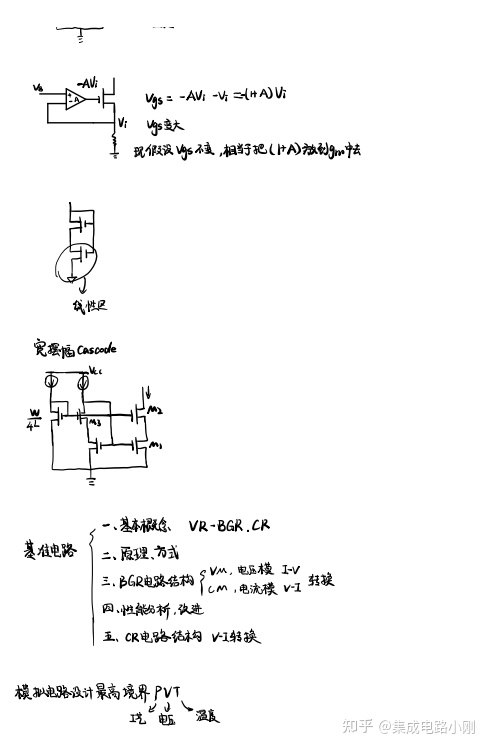 -AVi
Vgs = -AVi - Vi = -(1+A)Vi
Vi
Vgs变大
现假设Vgs不变,相当于把(1+A)放到gm中去
线性区
宽摆幅Cascode
Vcc
W/4L
M3
M2
M1
一、基本概念 VR-BGR.CR
基准电路
二、原理、方式
三、BGR电路结构
VM,电压模 I-V
CM,电流模 V-I
转换
四、性能分析,改进
五、CR电路结构 V-I转换
模拟电路设计最高境界PVT
工艺 电压 温度
知乎 @集成电路小刚